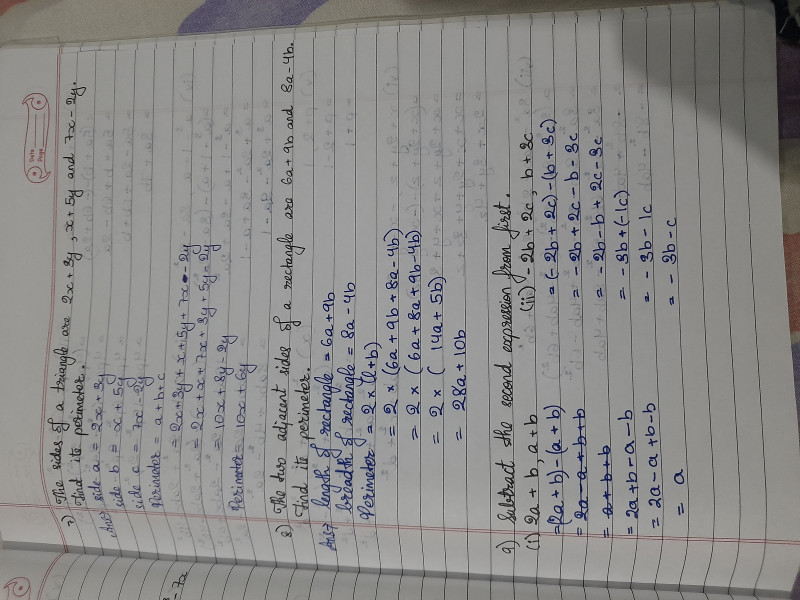 Date
Page
7) The sides of a triangle are 2x + 3y, x + 5y and 7x - 2y.
Find its perimeter.
Ans: side a = 2x + 3y
side b = x + 5y
side c = 7x - 2y
Perimeter = a + b + c
= 2x + 3y + x + 5y + 7x - 2y
= 2x + x + 7x + 3y + 5y - 2y
= 10x + 8y - 2y
Perimeter = 10x + 6y
8) The two adjacent sides of a rectangle are 6a + 9b and 8a - 4b.
Find its perimeter.
Ans: length of rectangle = 6a + 9b
breadth of rectangle = 8a - 4b
Perimeter = 2 × (l + b)
= 2 × (6a + 9b + 8a - 4b)
= 2 × (6a + 8a + 9b - 4b)
= 2 × (14a + 5b)
= 28a + 10b
9) Subtract the second expression from first.
(i) 2a + b, a + b
= (2a + b) - (a + b)
= 2a - a + b + b
= a + b + b
= 2a + b - a - b
= 2a - a + b - b
= a
(iii) - 2b + 2c, b + 3c
= (- 2b + 2c) - (b + 3c)
= - 2b + 2c - b - 3c
= - 2b - b + 2c - 3c
= - 3b + (-1c)
= - 3b - 1c
= - 3b - c
- 7x